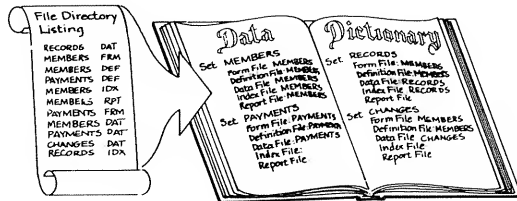 File Directory
Listing
RECORDS DAT
MEMBERS FRM
MEMBERS DEF
PAYMENTS DEF
MEMBERS IDX
MEMBERS RPT
PAYMENTS FRM
MEMBERS DAT
PAYMENTS DAT
CHANGES DAT
RECORDS IDX
Data
Set MEMBERS
Form File MEMBERS
Definition File: MEMBERS
Data File MEMBERS
Index File MEMBERS
Report File: MEMBERS
Set PAYMENTS
Form File: PAYMENTS
Definition File: PAYMENTS
Data File: PAYMENTS
Index File:
Report File
Dictionary
Set RECORDS
Form File: MEMBERS
Definition File: MEMBERS
Data File: RECORDS
Index File RECORDS
Report File
Set CHANGES
Form File MEMBERS
Definition File: MEMBERS
Data File CHANGES
Index File
Report File